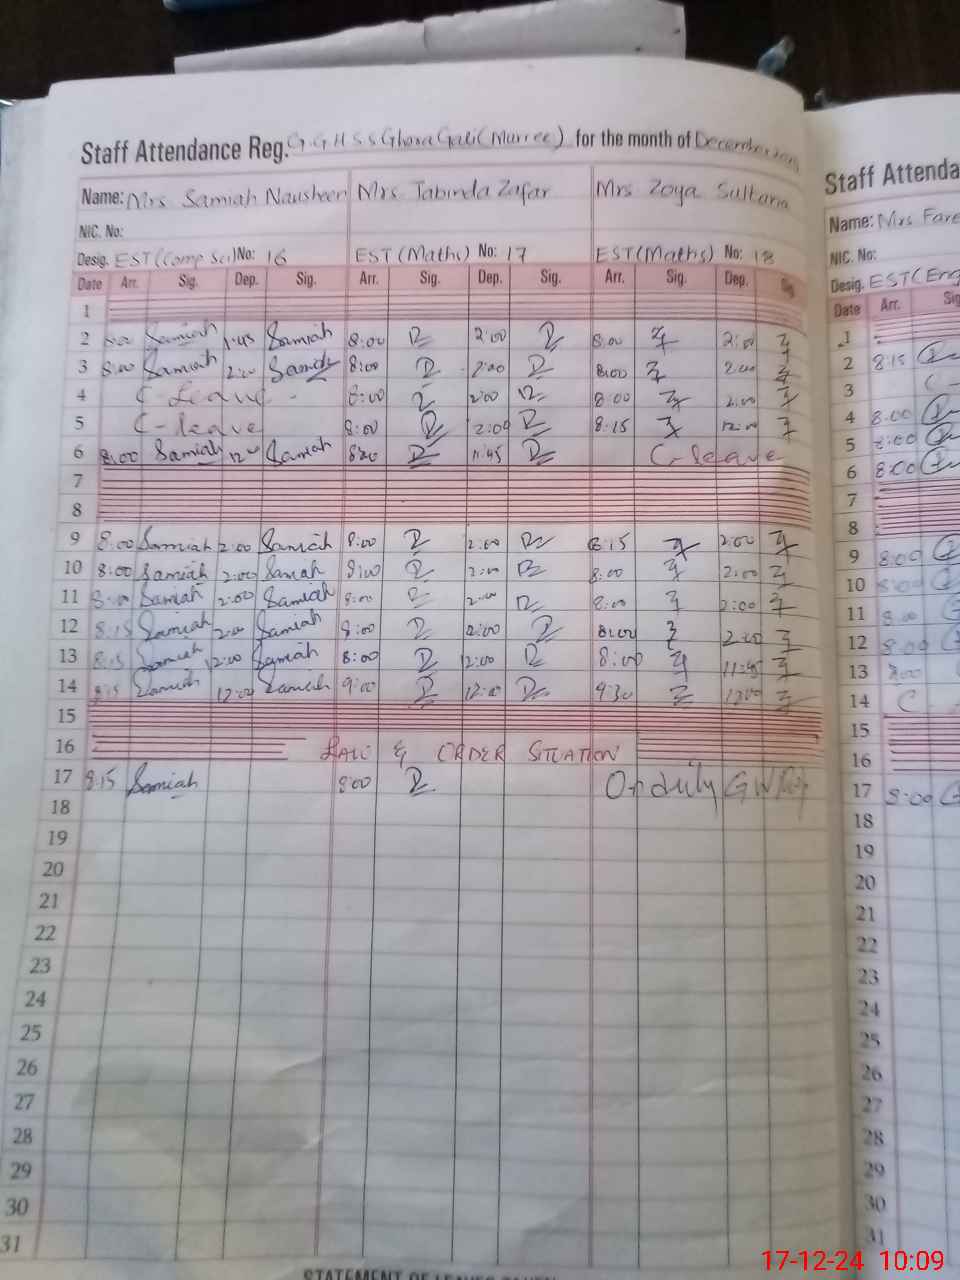 Staff Attendance Reg. G.G.H.S.S Ghora Gali (Murree) for the month of December
Name: Mrs Samiah Nausheen Mrs Tabinda Zafar Mrs Zoya Sultana
NIC. No:
Desig. EST (Comp Sci) No: 16 EST (Maths) No: 17 EST (Maths) No: 18
Date Arr. Sig. Dep. Sig. Arr. Sig. Dep. Sig. Arr. Sig. Dep. Sig.
1
2 8:00 Samiah 1:45 Samiah 8:00 2:00 8:00 2:00
3 8:00 Samiah 2:00 Samiah 8:00 2:00 8:00 2:00
4 C-Leave - 8:00 2:00 8:00 2:00
5 C-leave 8:00 2:00 8:15 12:00
6 8:00 Samiah Samiah 11:45 C-leave
7
8
9 8:00 Samiah 2:00 Samiah 8:00 2:00 8:15 2:00
10 8:00 Samiah 2:00 Samiah 8:00 2:00 8:00 2:00
11 8:00 Samiah 2:00 Samiah 8:00 2:00 8:00 2:00
12 8:15 Samiah 2:00 Samiah 8:00 2:00 8:00 2:00
13 8:15 Samiah 12:00 Samiah 8:00 12:00 8:00 11:45
14 8:15 Samiah 12:00 Samiah 9:00 12:00 9:30
15
16 LAW & ORDER SITUATION
17 8:15 Samiah 8:00 On duty
18
19
20
21
22
23
24
25
26
27
28
29
30
31
STATEMENT OF LEAVES TAKEN
Staff Attenda
Name: Mrs Fare
NIC. No:
Desig. EST (Eng
Date Arr. Sig
1
2 8:15
3 C-
4 8:00
5 8:00
6 8:00
7
8
9 8:00
10 8:00
11 8:00
12 8:00
13 8:00
14 C
15
16
17 8:00
18
19
20
21
22
23
24
25
26
27
28
29
30
31
17-12-24 10:09